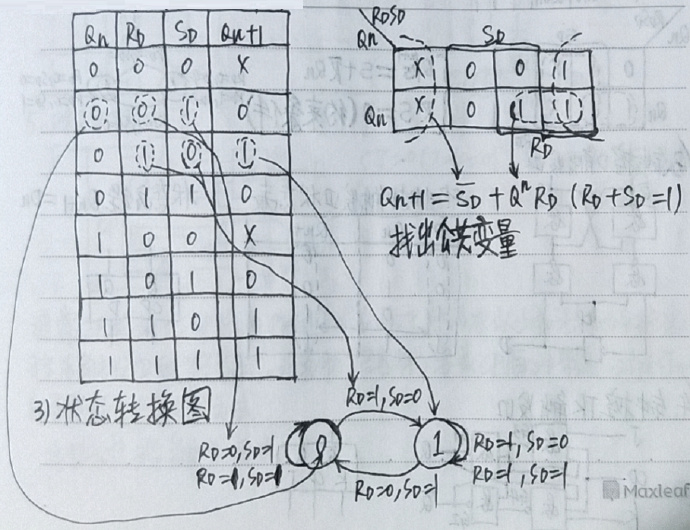 Qn RD SD Qn+1
0 0 0 X
0 0 1 0
0 1 0 1
0 1 1 0
1 0 0 X
1 0 1 0
1 1 0 1
1 1 1 1
RDSD
Qn
SD
X 0 0 1
Qn X 0 1 1
RD
Qn+1 = S̅D + Qⁿ RD (RD + SD = 1)
找出公共变量
3) 状态转换图
RD=1, SD=0
RD=0, SD=1
RD=1, SD=1
0
1
RD=1, SD=0
RD=1, SD=1
RD=0, SD=1
Maxleaf